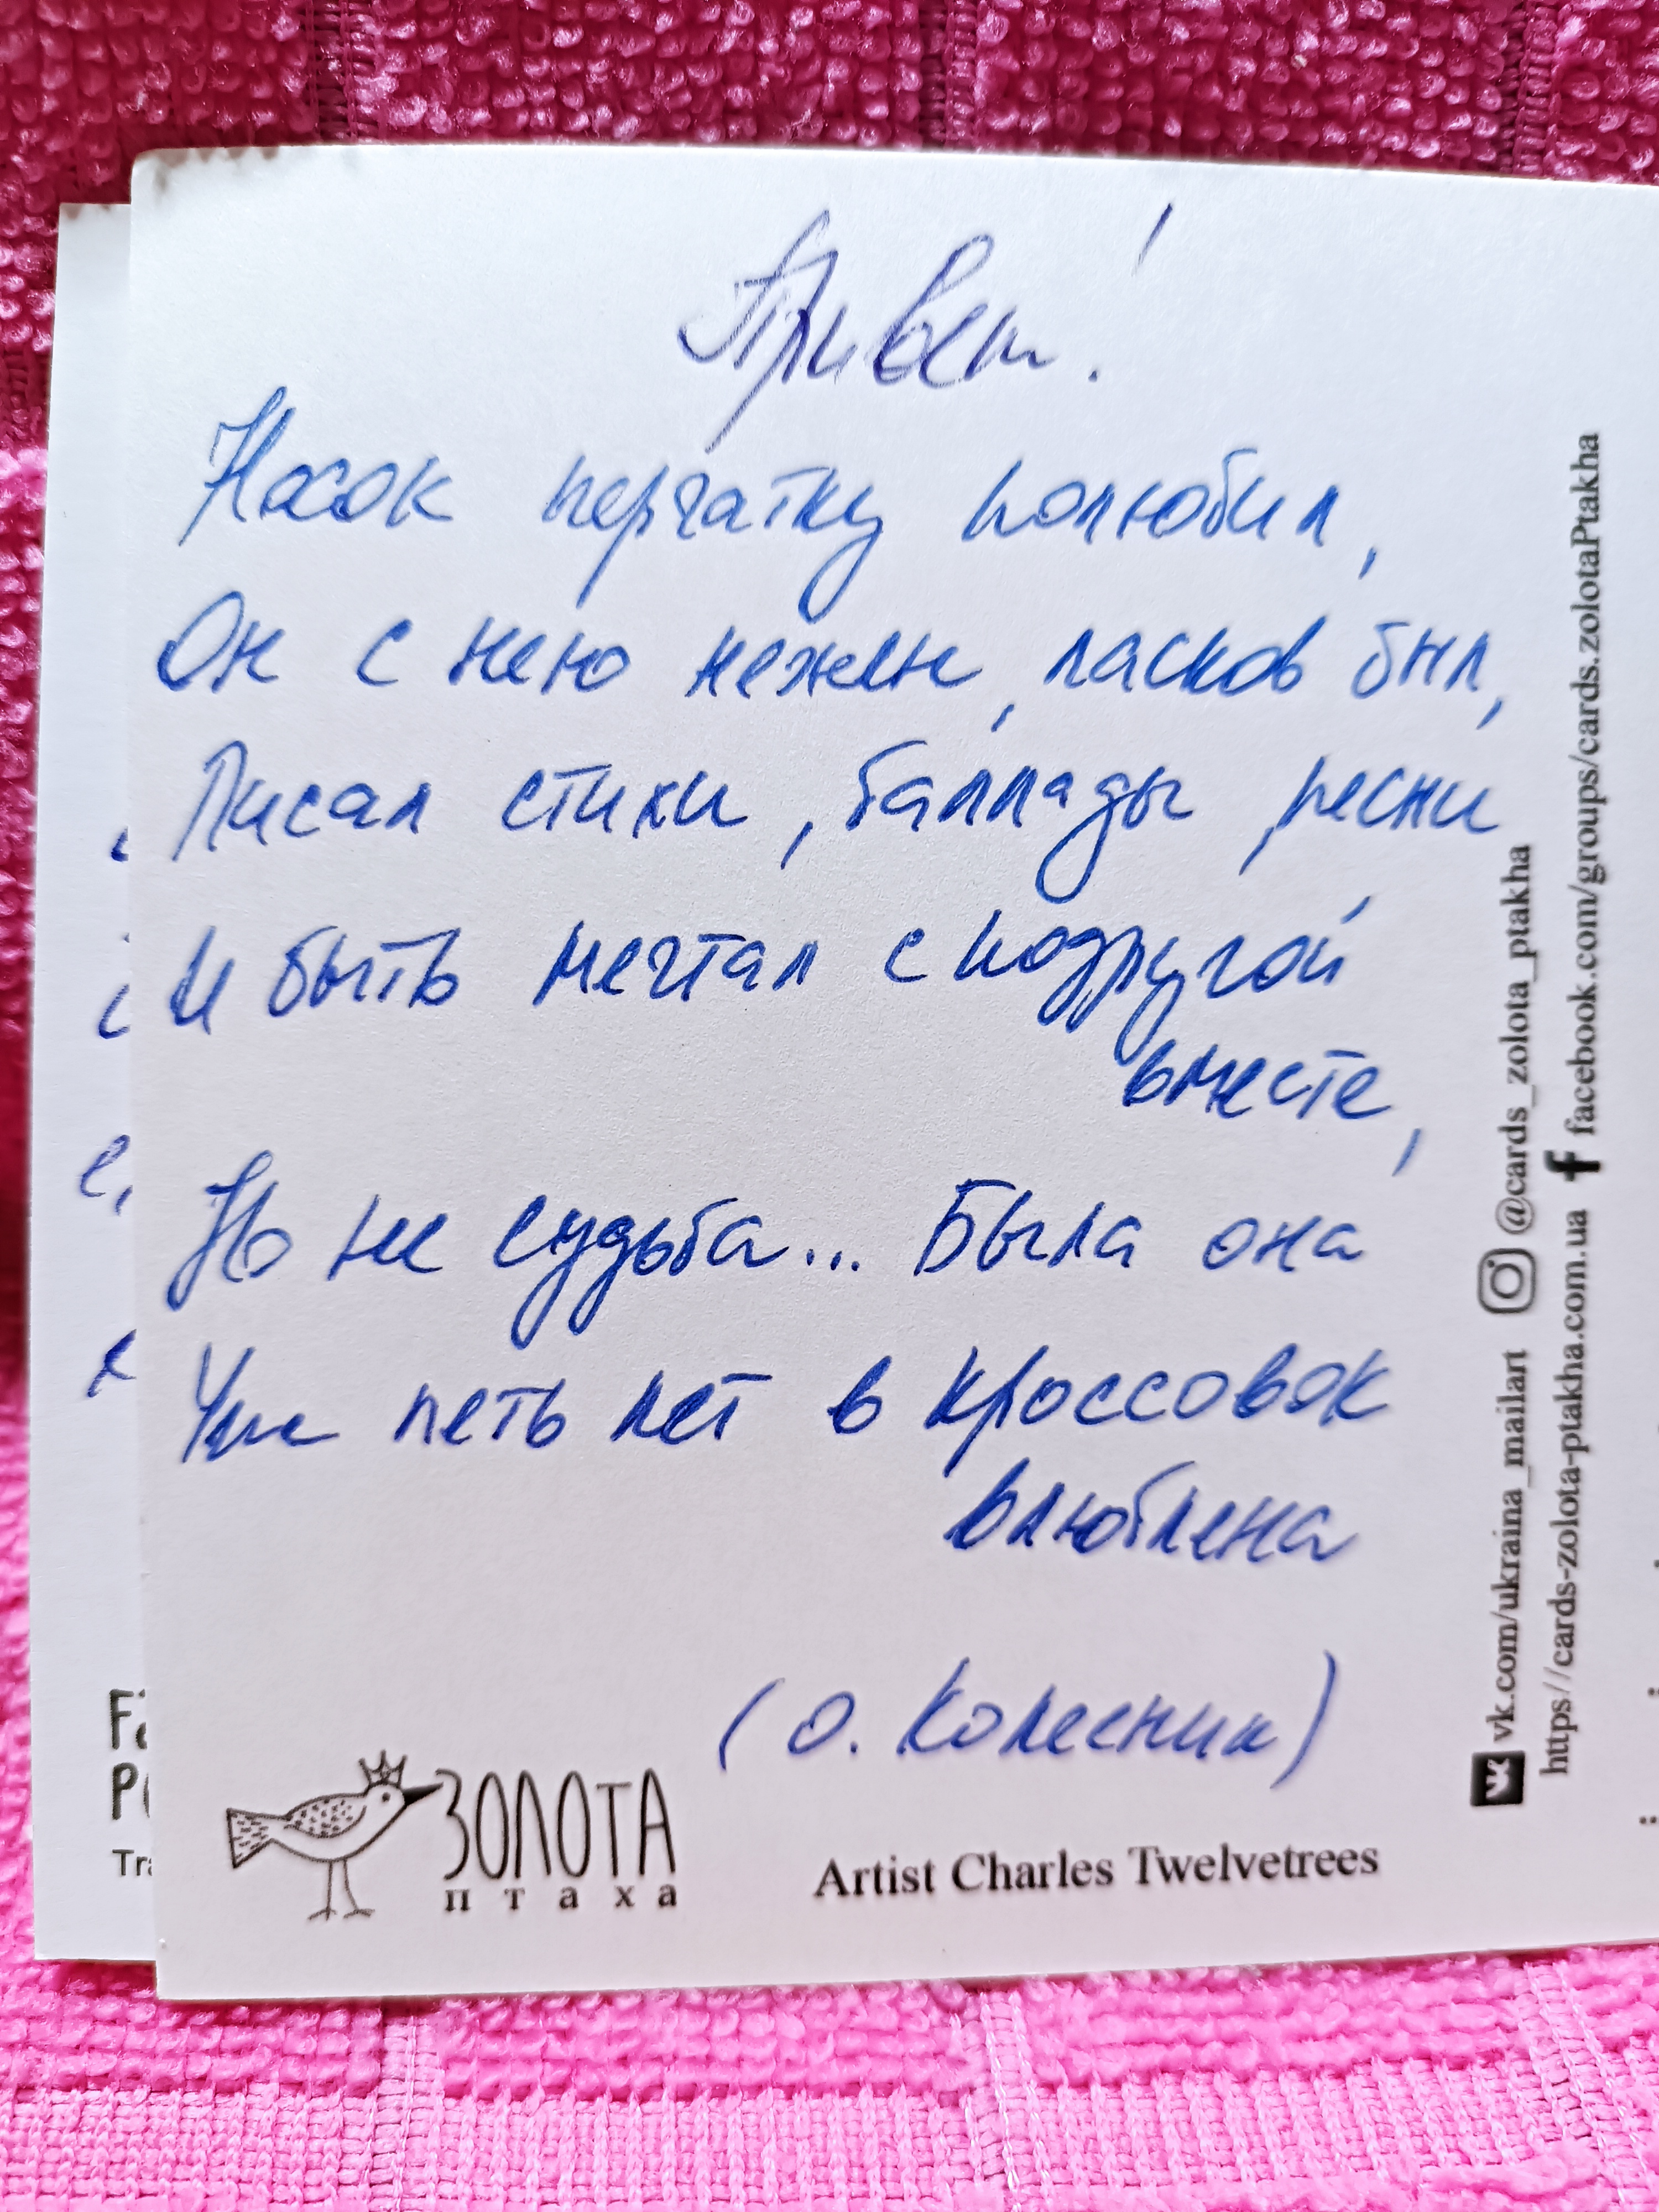 Привет!
Носок перчатку полюбил,
Он с нею нежен, ласков был,
Писал стихи, баллады, песни
И быть мечтал с подругой
вместе,
Но не судьба... Была она
Уже пять лет в кроссовок
влюблена
(О. Колесник)
ЗОЛОТА
птаха
Artist Charles Twelvetrees
vk.com/ukraina_mailart @cards_zolota_ptakha
https://cards-zolota-ptakha.com.ua facebook.com/groups/cards.zolotaPtakha